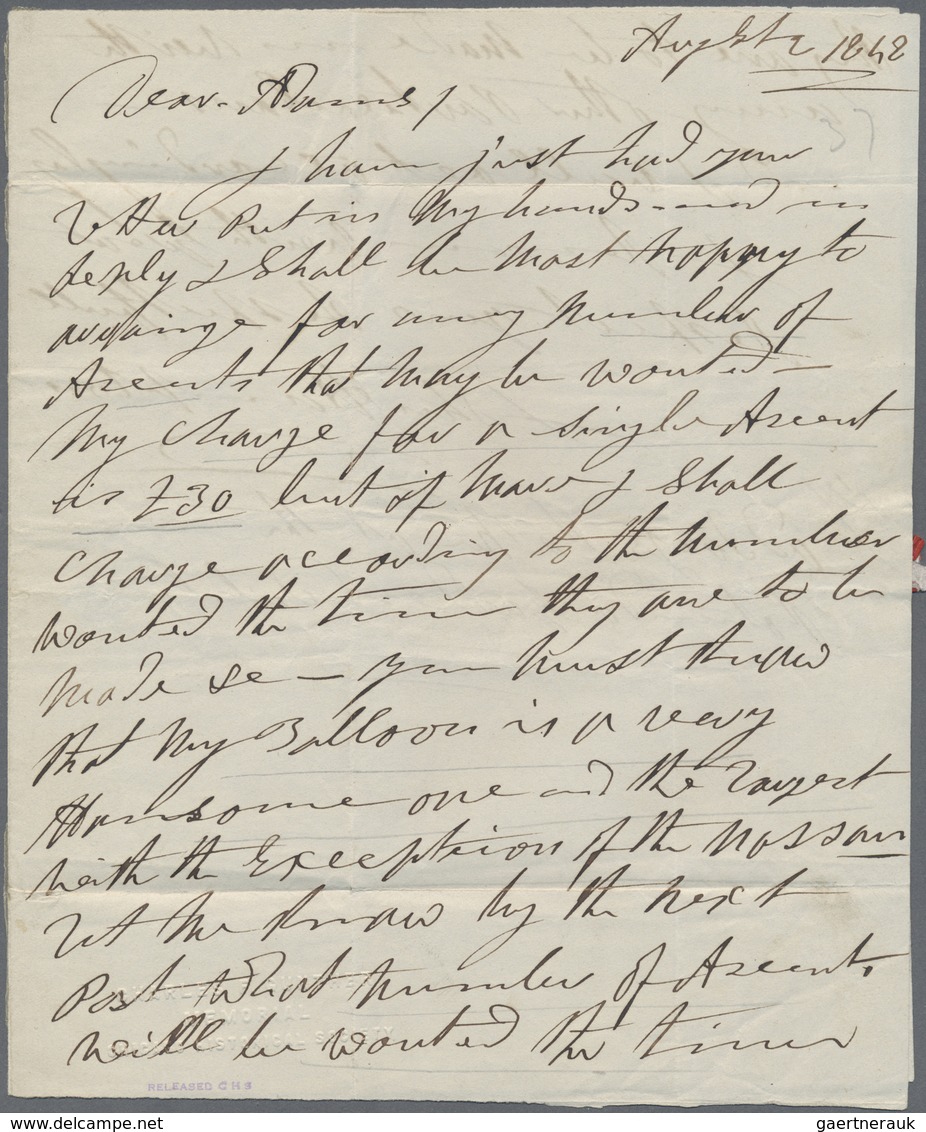 Augst 2 1848
Dear Adams/
I have just had your
Letter put in My hands - and in
reply I Shall be Most happy to
arrainge for any Number of
Ascents that May be wonted -
My Charge for a single Ascent
is £30 but if More I Shall
Charge according to the Number
wonted the time they are to be
Made &c - you Must know
that My Balloon is a very
Hansome one and the largest
with the Exception of the Nassau
Let Me know by the Next
Post What Number of Ascents
will be wonted the times
MEMORIAL
RELEASED C H S
gaertnerauk